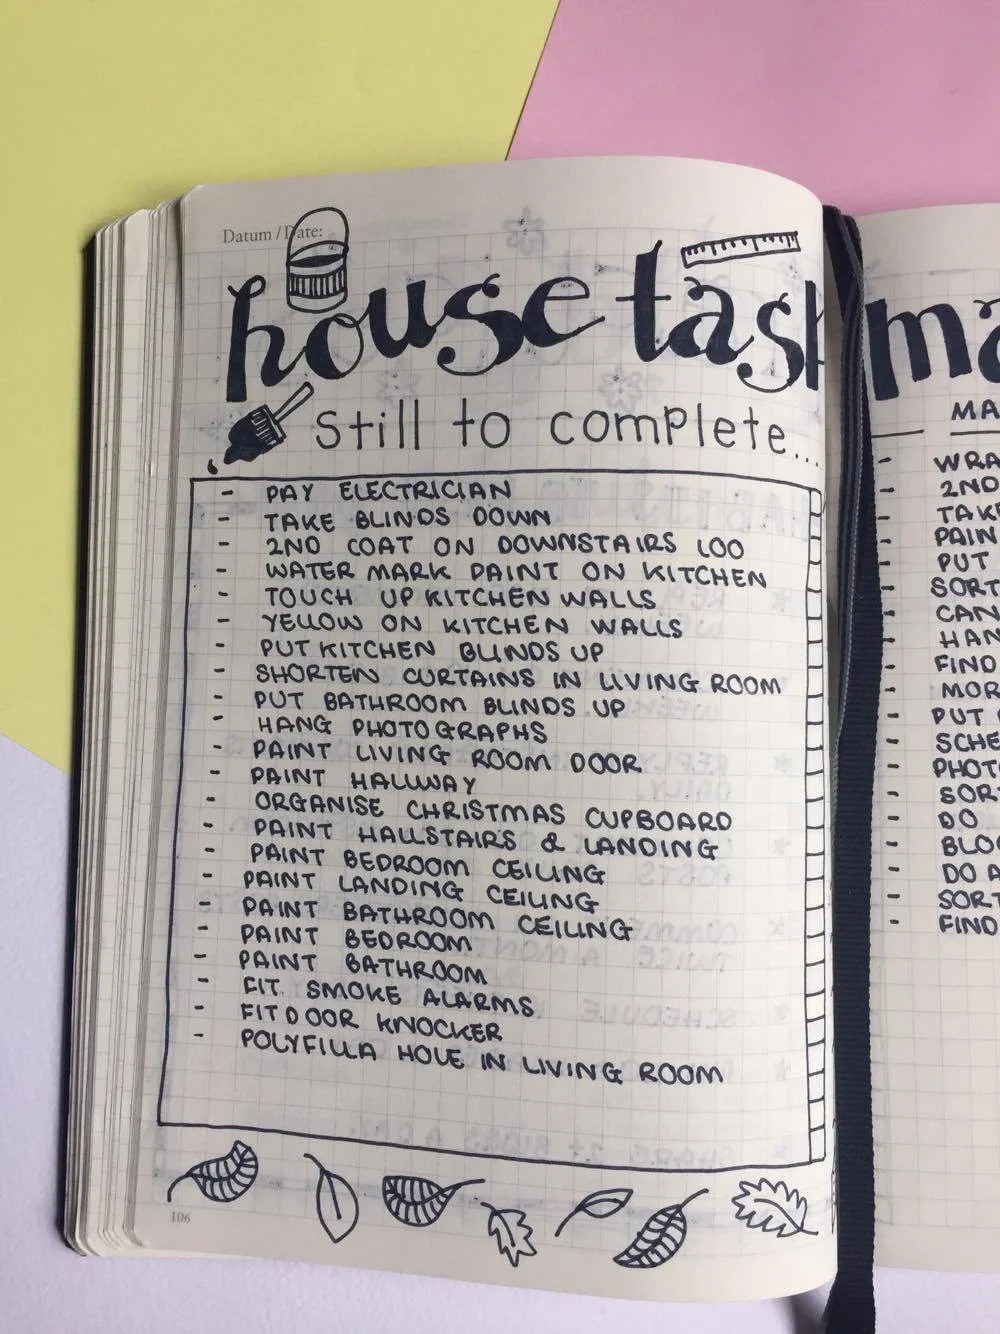 Datum / Date:
house task
Still to complete...
- PAY ELECTRICIAN
- TAKE BLINDS DOWN
- 2ND COAT ON DOWNSTAIRS LOO
- WATER MARK PAINT ON KITCHEN
- TOUCH UP KITCHEN WALLS
- YELLOW ON KITCHEN WALLS
- PUT KITCHEN BLINDS UP
- SHORTEN CURTAINS IN LIVING ROOM
- PUT BATHROOM BLINDS UP
- HANG PHOTOGRAPHS
- PAINT LIVING ROOM DOOR
- PAINT HALLWAY
- ORGANISE CHRISTMAS CUPBOARD
- PAINT HALLSTAIRS & LANDING
- PAINT BEDROOM CEILING
- PAINT LANDING CEILING
- PAINT BATHROOM CEILING
- PAINT BEDROOM
- PAINT BATHROOM
- FIT SMOKE ALARMS
- FIT DOOR KNOCKER
- POLYFILLA HOLE IN LIVING ROOM
106
ma
MA
- WRA
- 2ND
- TAKE
- PAIN
- PUT
- SORT
- CAN
- HAN
- FIND
- MOR
- PUT
- SCHE
- PHOT
- SOR
- DO
- BLO
- DO A
- SORT
- FIND